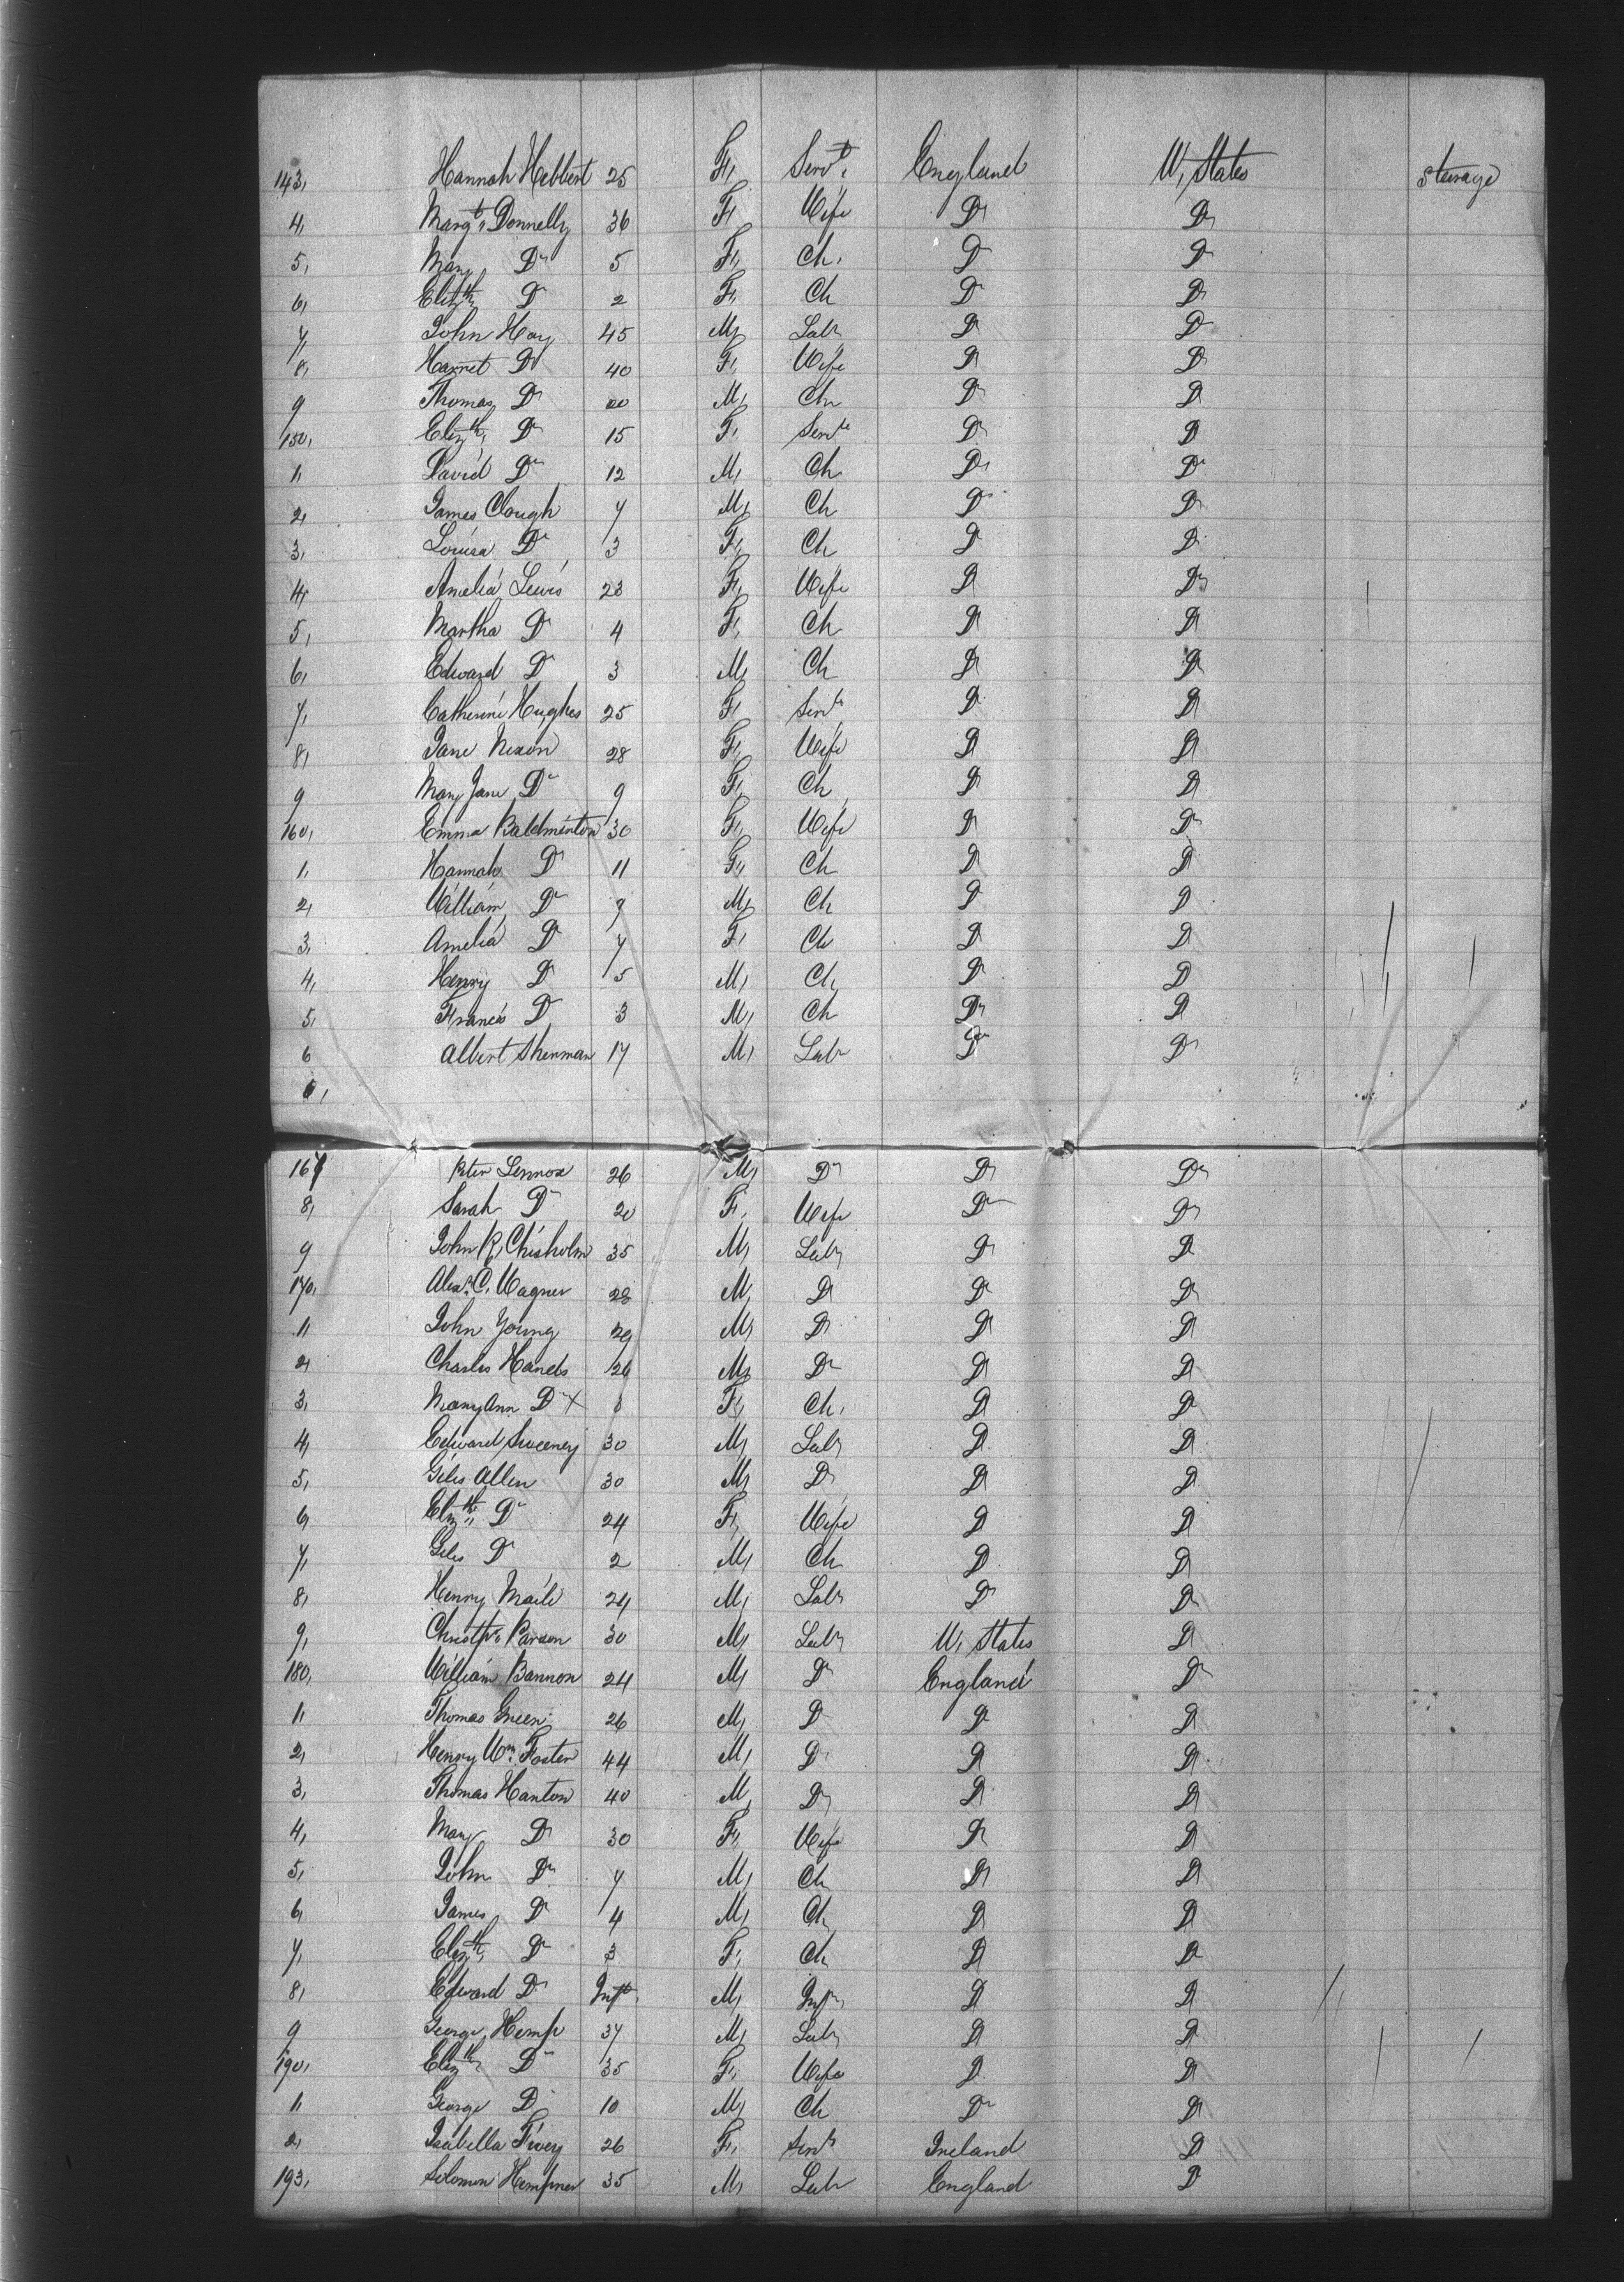 143, Hannah Hebbert 25 F, Servt. England U, States steerage
4, Margt. Donnelly 36 F, Wife Do Do
5, Mary Do 5 F, Ch, Do Do
6, Elizth Do 2 F, Ch Do Do
7, John Hay 45 M, Labr Do Do
8, Harret Do 40 F, Wife Do Do
9 Thomas Do 20 M, Ch Do Do
150, Elizth, Do 15 F, Servt Do Do
1, David Do 12 M, Ch Do Do
2, James Clough 7 M, Ch Do Do
3, Louisa Do 3 F, Ch Do Do
4, Amelia Lewis 23 F, Wife Do Do
5, Martha Do 4 F, Ch Do Do
6, Edward Do 3 M, Ch Do Do
7, Catherine Hughes 25 F, Servt Do Do
8, Jane Nixon 28 F, Wife Do Do
9 Mary Jane Do 9 F, Ch Do Do
160, Emma Baldminton 30 F, Wife Do Do
1, Hannah Do 11 F, Ch Do Do
2, William Do 9 M, Ch Do Do
3, Amelia Do 7 F, Ch Do Do
4, Henry Do 5 M, Ch Do Do
5, Francis Do 3 M, Ch Do Do
6 Albert Sherman 17 M, Labr Do Do
167 Peter Lennox 26 M, Do Do Do
8, Sarah Do 20 F, Wife Do Do
9 John R, Chisholm 35 M, Labr Do Do
170, Alexr. C, Wagner 28 M, Do Do Do
1, John Young 29 M, Do Do Do
2, Charles Hands 26 M, Do Do Do
3, Mary Ann Do X F, Ch, Do Do
4, Edward Sweeney 30 M, Labr Do Do
5, Giles Allen 30 M, Do Do Do
6, Elizth, Do 24 F, Wife Do Do
7, Giles Do 2 M, Ch Do Do
8, Henry Maile 24 M, Labr Do Do
9, Christpr. Parson 30 M, Labr U, States Do
180, William Bannon 24 M, Do England Do
1, Thomas Green 26 M, Do Do Do
2, Henry Wm. Foster 44 M, Do Do Do
3, Thomas Hanton 40 M, Do Do Do
4, Mary Do 30 F, Wife Do Do
5, John Do 7 M, Ch Do Do
6, James Do 4 M, Ch Do Do
7, Elizth, Do 3 F, Ch Do Do
8, Edward Do Inft, M, Inft, Do Do
9 George Hemp 37 M, Labr Do Do
190, Elizth, Do 35 F, Wife Do Do
1, George Do 10 M, Ch Do Do
2, Isabella 26 F, Servt Ireland Do
193, Solomon Hempner 35 M, Labr England Do